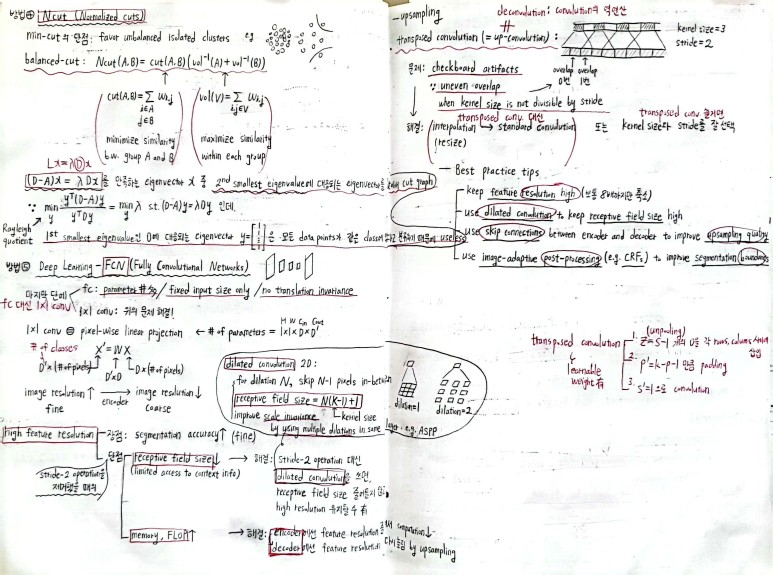 방법④ Ncut (Normalized cuts)
min-cut의 단점: favor unbalanced isolated clusters e.g.
balanced-cut: Ncut(A,B) = cut(A,B)(vol⁻¹(A)+vol⁻¹(B))
cut(A,B) = Σ Wi,j
i∈A
j∈B
minimize similarity
b.w. group A and B
vol(V) = Σ Wi,j
i,j∈V
maximize similarity
within each group
Lx = λDx
(D-A)x = λDx을 만족하는 eigenvector x 중 2nd smallest eigenvalue에 대응되는 eigenvector를 (cut graph)
∵ min yᵀ(D-A)y / yᵀDy = min λ s.t. (D-A)y = λDy 인데,
y
Rayleigh
quotient
1st smallest eigenvalue인 0에 대응되는 eigenvector y = [1 1] 은 모든 data points가 같은 class 때문에 useless
방법⑤ Deep Learning - FCN (Fully Convolutional Networks)
마지막 단에 fc: parameter 수 / fixed input size only / no translation invariance
fc 대신 1x1 conv
1x1 conv: 위의 문제 해결!
1x1 conv ≡ pixel-wise linear projection ← # of parameters = 1x1xDxD'
H W Cin Cout
# of classes X' = WX
D'x(# of pixels) D'xD Dx(# of pixels)
image resolution↑ → image resolution↓
fine encoder coarse
dilated convolution 2D:
for dilation N, skip N-1 pixels in-between
receptive field size = N(K-1)+1
kernel size
improve scale invariance
by using multiple dilations in same layer e.g. ASPP
dilation=1 dilation=2
High feature resolution 장점: segmentation accuracy↑ (fine)
단점: receptive field size↓ → 해결: Stride-2 operation 대신
(limited access to context info)
dilated convolution을 쓰면,
stride-2 operation을
제거했을 때
receptive field size 줄어들지 않고
high resolution 유지할 수 有
memory, FLOP↑ → 해결: encoder에선 feature resolution computation↓
decoder에선 feature resolution 다시 by upsampling
upsampling
deconvolution: convolution의 역연산
transposed convolution (= up-convolution):
kernel size = 3
stride = 2
overlap overlap
0번 1번
문제: checkboard artifacts
∵ uneven overlap
when kernel size is not divisible by stride
transposed conv. 대신
해결: interpolation → standard convolution
(resize)
transposed conv 쓸거면
또는 kernel size와 stride를 잘 선택
Best practice tips
keep feature resolution high
use dilated convolution to keep receptive field size high
use skip connections between encoder and decoder to improve upsampling quality
use image-adaptive post-processing (e.g. CRFs) to improve segmentation
transposed convolution
learnable
weight 有
(unpooling)
1. z = s-1 개의 0을 각 rows, columns 사이에 삽입
2. p' = k-p-1 만큼 padding
3. s'=1으로 convolution